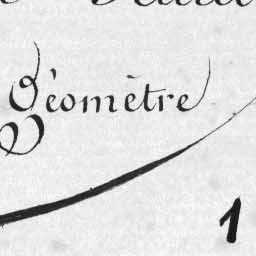 Géomètre
1